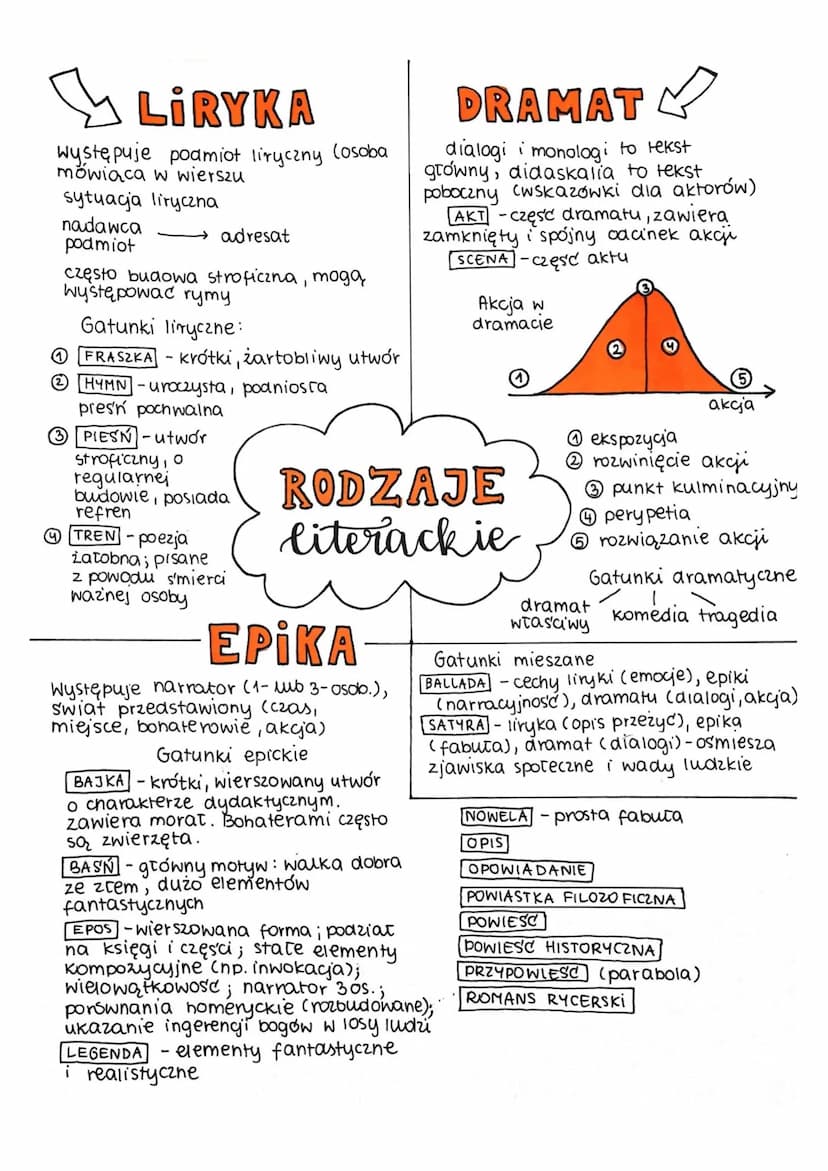 LiRYKA
Występuje podmiot liryczny (osoba
mówiąca w wierszu
sytuacja liryczna
nadawca
podmiot → adresat
często budowa stroficzna, mogą
występować rymy
Gatunki liryczne:
① FRASZKA - krótki, żartobliwy utwór
② HYMN - uroczysta, podniosła
pieśń pochwalna
③ PIEŚŃ - utwór
stroficzny, o
regularnej
budowie, posiada
refren
④ TREN - poezja
żałobna; pisane
z powodu śmierci
ważnej osoby
DRAMAT
dialogi i monologi to tekst
główny, didaskalia to tekst
poboczny (wskazówki dla aktorów)
AKT - część dramatu, zawiera
zamknięty i spójny odcinek akcji
SCENA - część aktu
Akcja w
dramacie
① ② ③ ④ ⑤
akcja
① ekspozycja
② rozwinięcie akcji
③ punkt kulminacyjny
④ perypetia
⑤ rozwiązanie akcji
Gatunki dramatyczne
dramat
właściwy komedia tragedia
RODZAJE
literackie
EPiKA
Występuje narrator (1- lub 3-osob.),
świat przedstawiony (czas,
miejsce, bohaterowie, akcja)
Gatunki epickie
BAJKA - krótki, wierszowany utwór
o charakterze dydaktycznym.
zawiera morał. Bohaterami często
są zwierzęta.
BAŚŃ - główny motyw: walka dobra
ze złem, dużo elementów
fantastycznych
EPOS - wierszowana forma; podział
na księgi i części; stałe elementy
kompozycyjne (np. inwokacja);
wielowątkowość; narrator 3os.;
porównania homeryckie (rozbudowane);
ukazanie ingerencji bogów w losy ludzi
LEGENDA - elementy fantastyczne
i realistyczne
Gatunki mieszane
BALLADA - cechy liryki (emocje), epiki
(narracyjność), dramatu (dialogi, akcja)
SATYRA - liryka (opis przeżyć), epika
(fabuła), dramat (dialogi) - ośmiesza
zjawiska społeczne i wady ludzkie
NOWELA - prosta fabuła
OPIS
OPOWIADANIE
POWIASTKA FILOZOFICZNA
POWIEŚĆ
POWIEŚĆ HISTORYCZNA
PRZYPOWIEŚĆ (parabola)
ROMANS RYCERSKI